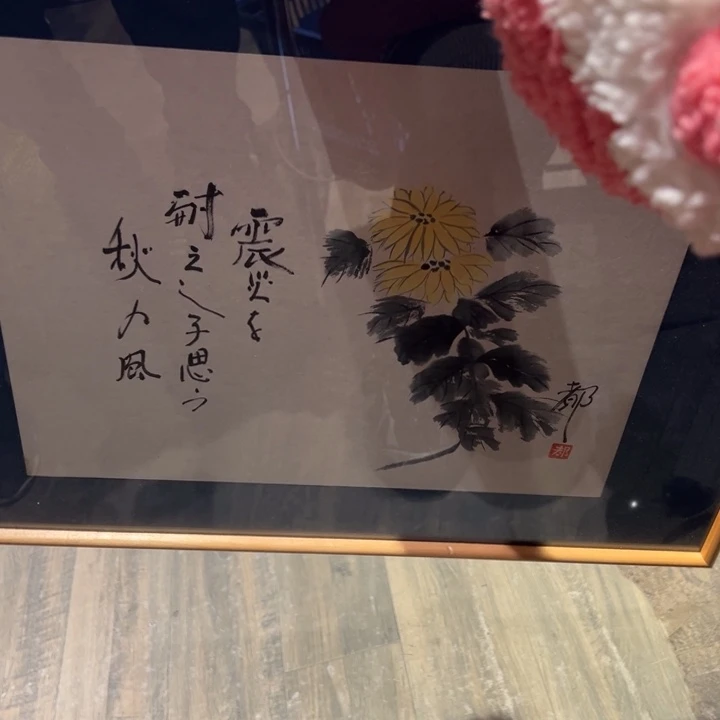 震災を
耐えし子思う
秋の風
都
都